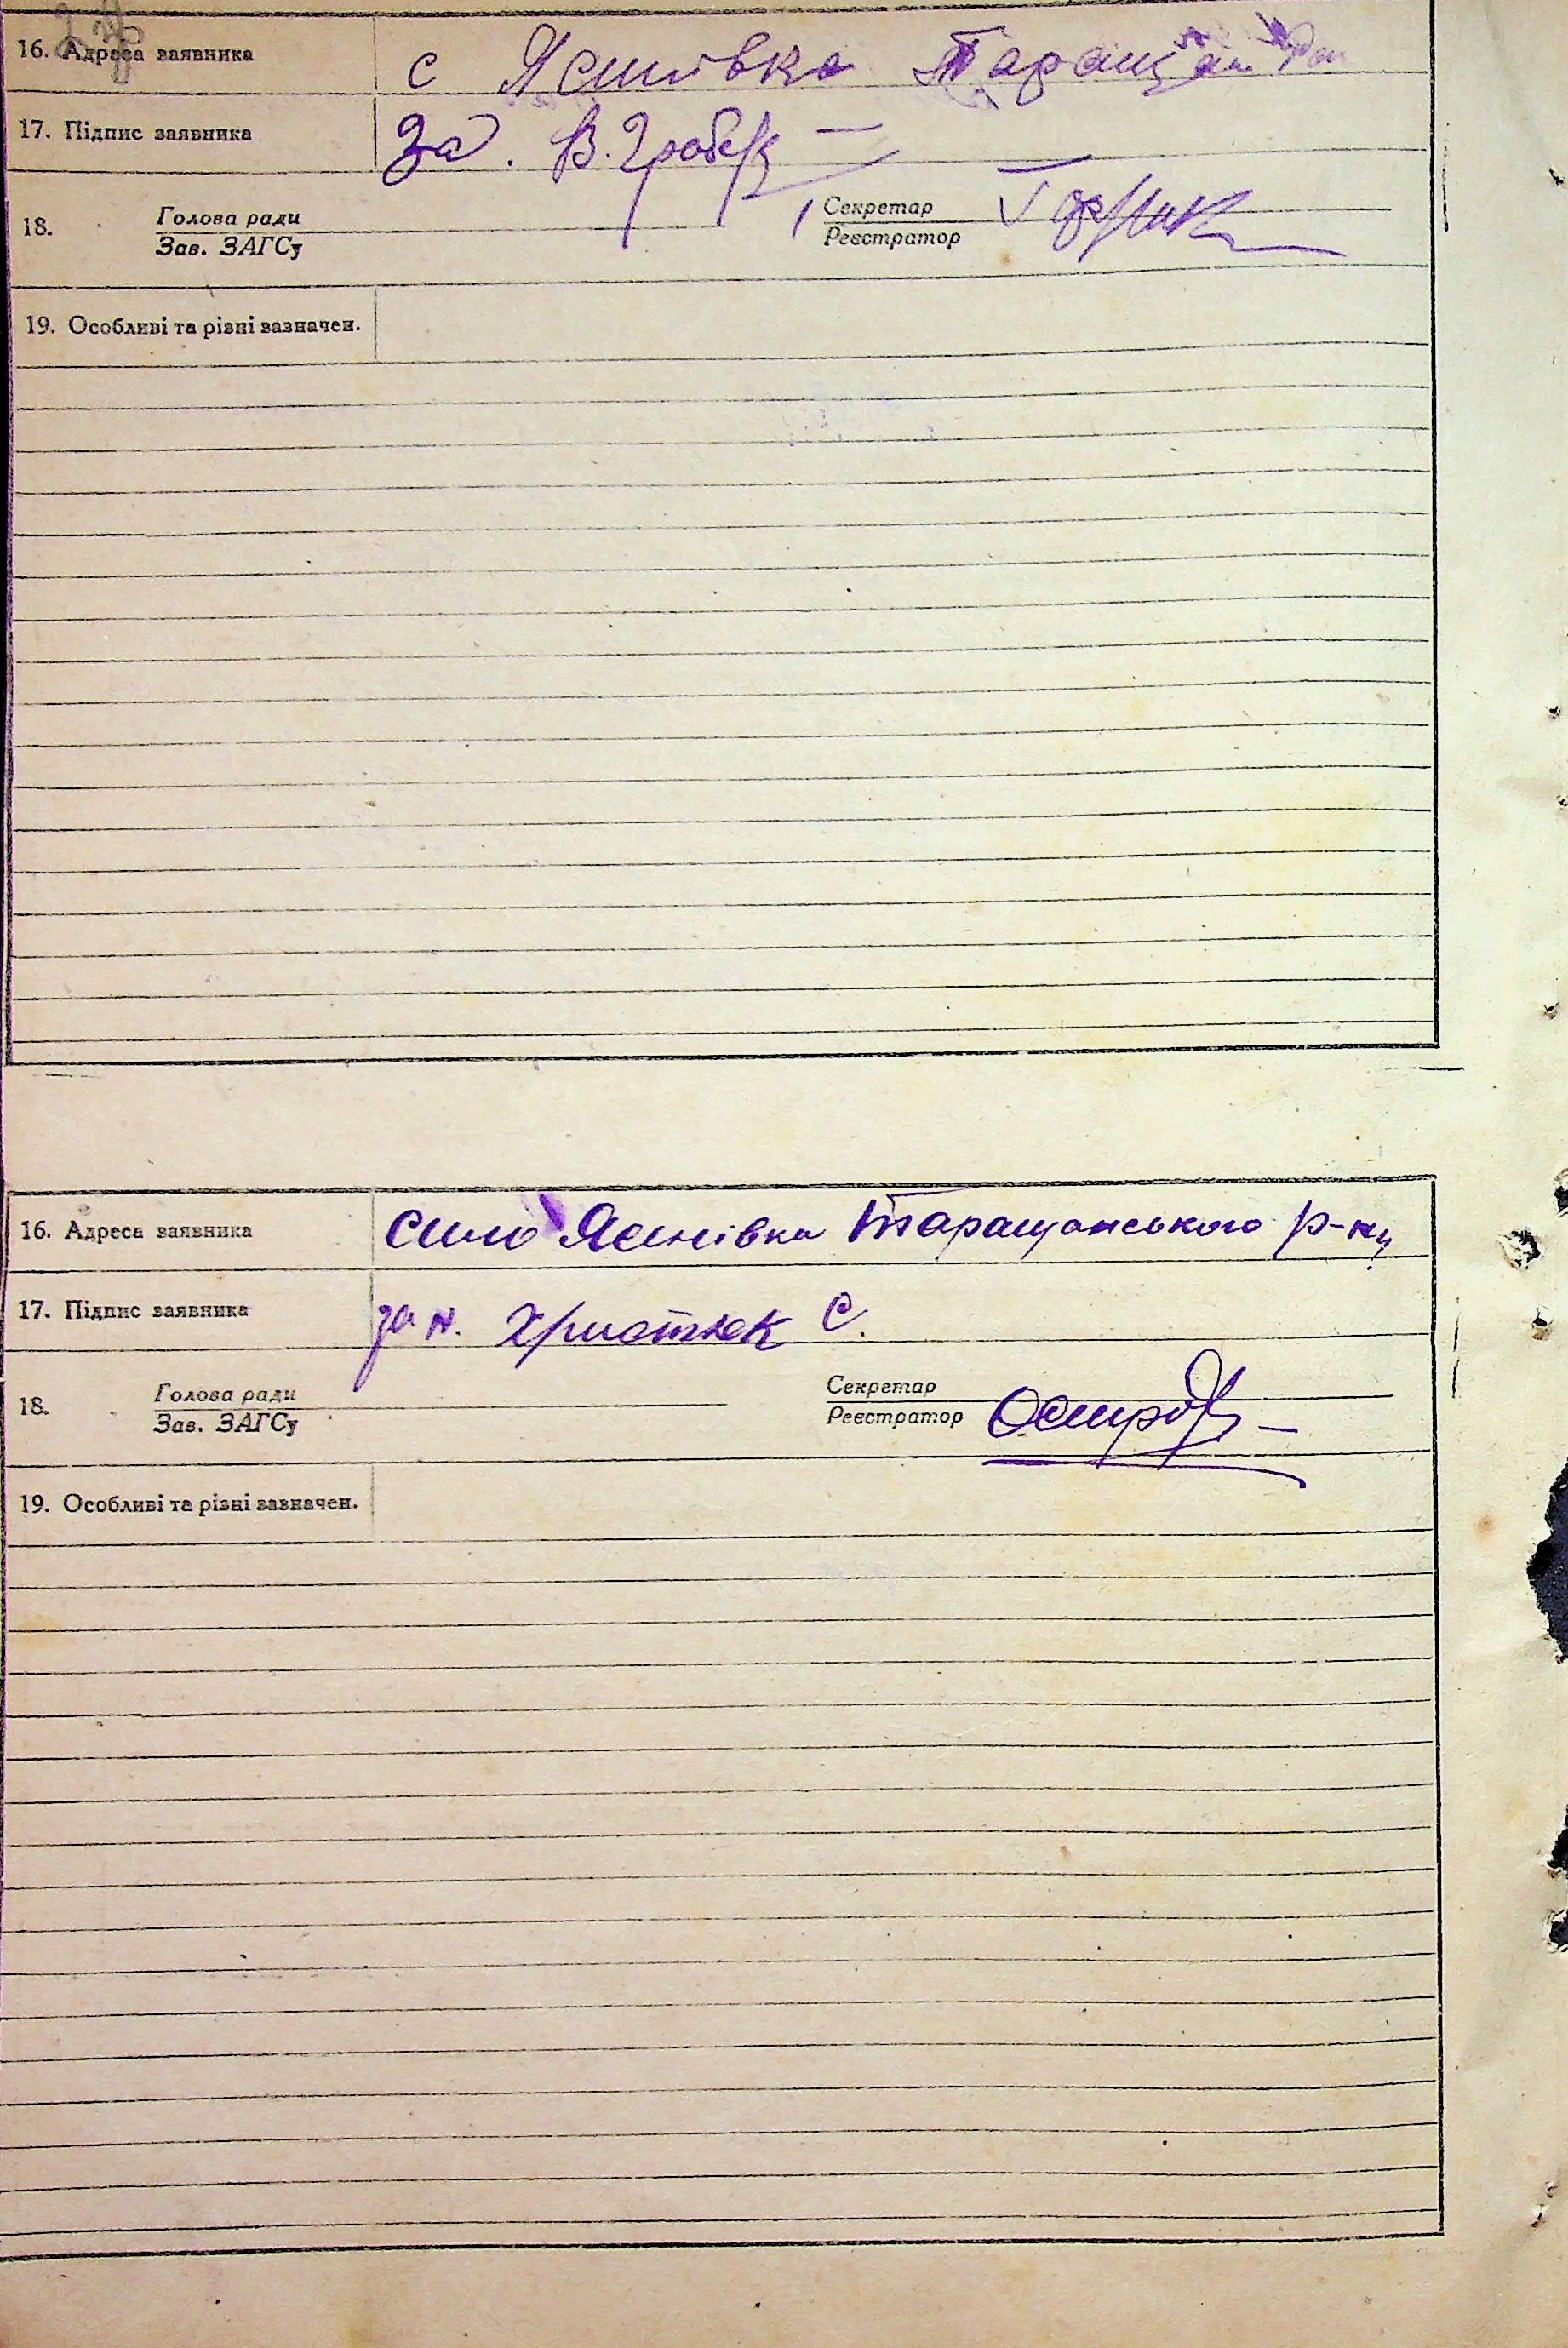 16. Адреса заявника с Яснівка Таращан Рай
17. Підпис заявника За.
18. Голова ради
Зав. ЗАГСу
Секретар
Реєстратор
19. Особливі та різні зазначен.
16. Адреса заявника село Яснівка Таращанського р-ну
17. Підпис заявника за н. Христюк С.
18. Голова ради
Зав. ЗАГСу
Секретар
Реєстратор
19. Особливі та різні зазначен.